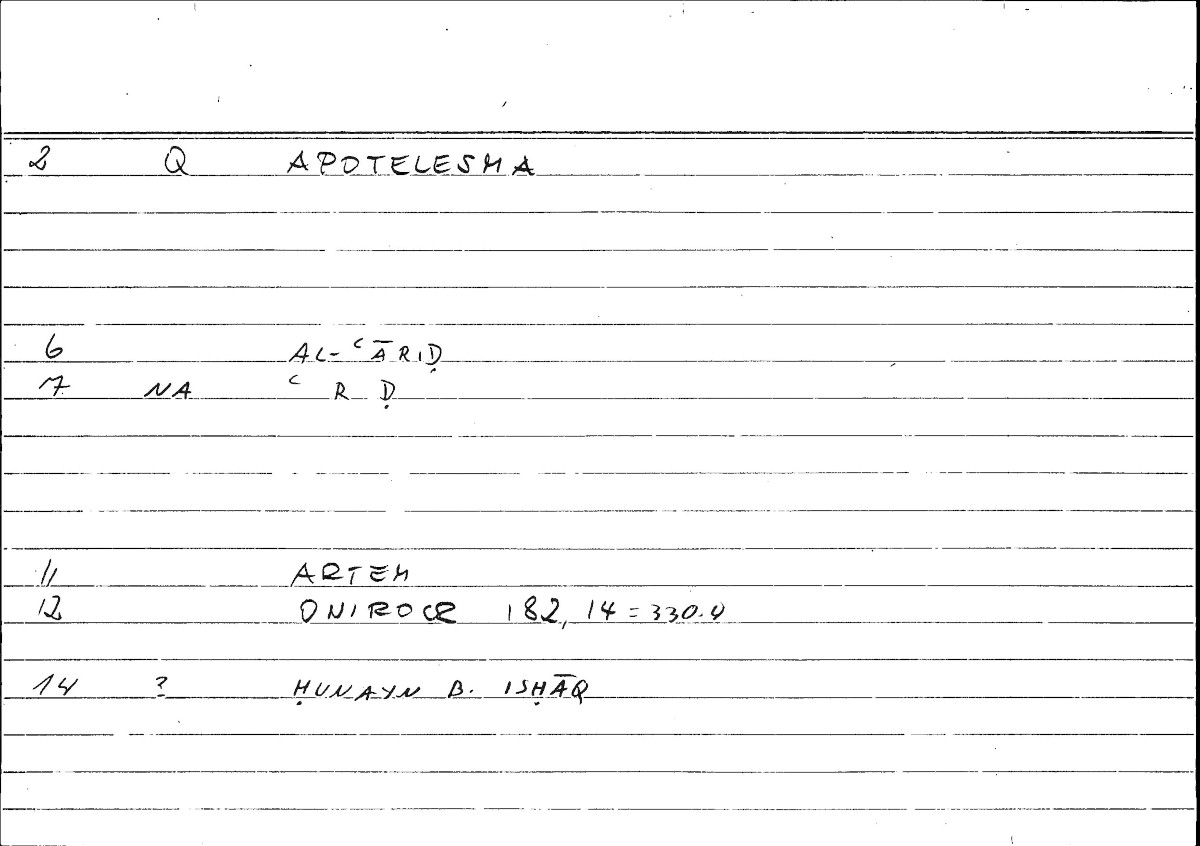 2 Q APOTELESMA
6 AL-ʿĀRIḌ
7 NA ʿ R Ḍ
11 ARTEM
12 ONIROCR 182, 14 = 330.4
14 ? ḤUNAYN B. ISḤĀQ